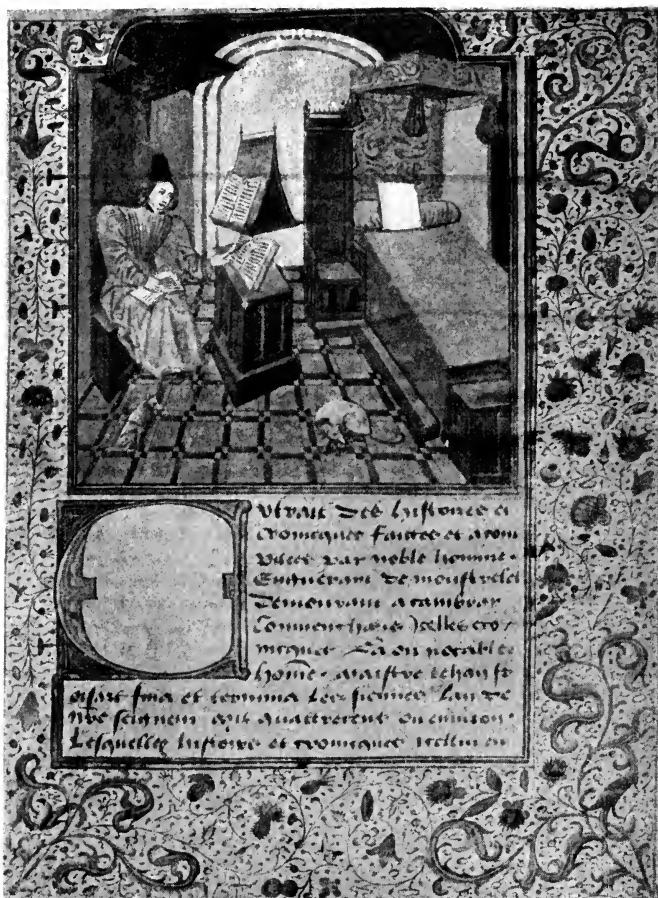 Extrait des histoires et
cronicques faictes et acom
pilees par noble homme
Enguerant de monstrelet
demourant a cambray
Commenchans icelles cro
nicques la ou notables
home maistre Jehan fr
oissart fina et termina les siennes Lan de
nre seigneur mil quattrecens ou environ
Lesquelles histoires et cronicques icellui en